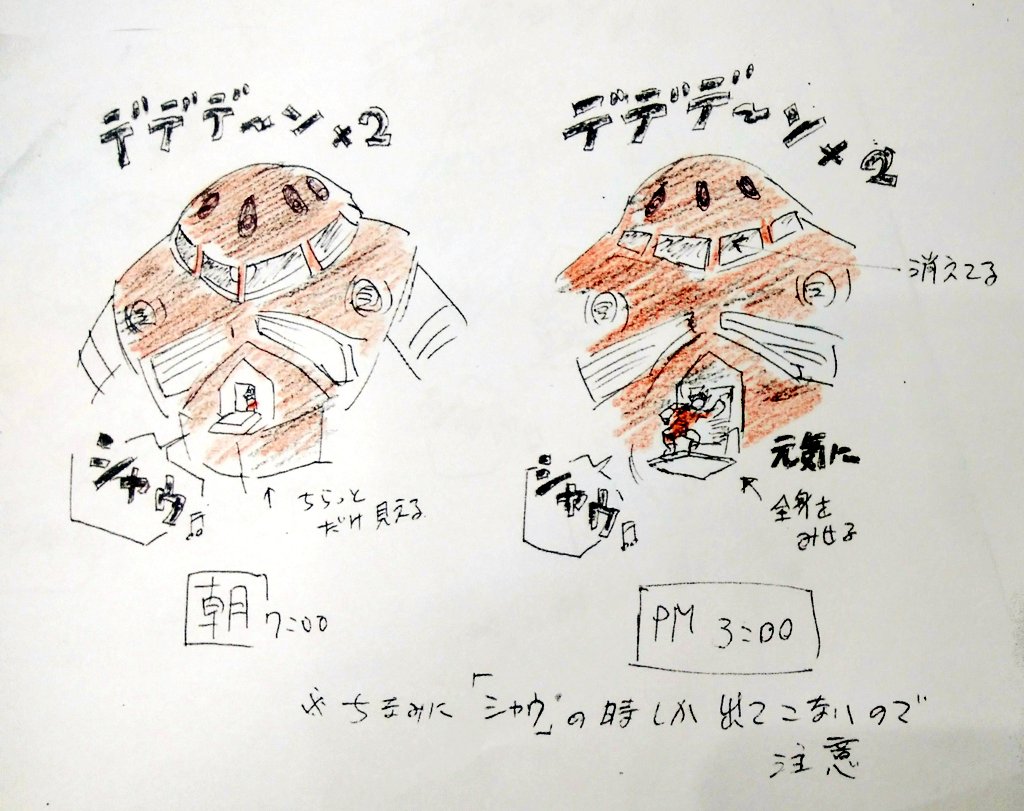 デデデ〜ン×2
デデデ〜ン×2
消えてる
シャウ
ちらっと
だけ見える
シャウ
元気に
全身を
みせる
朝7:00
PM 3:00
※ちなみに「シャウ」の時しか出てこないので
注意